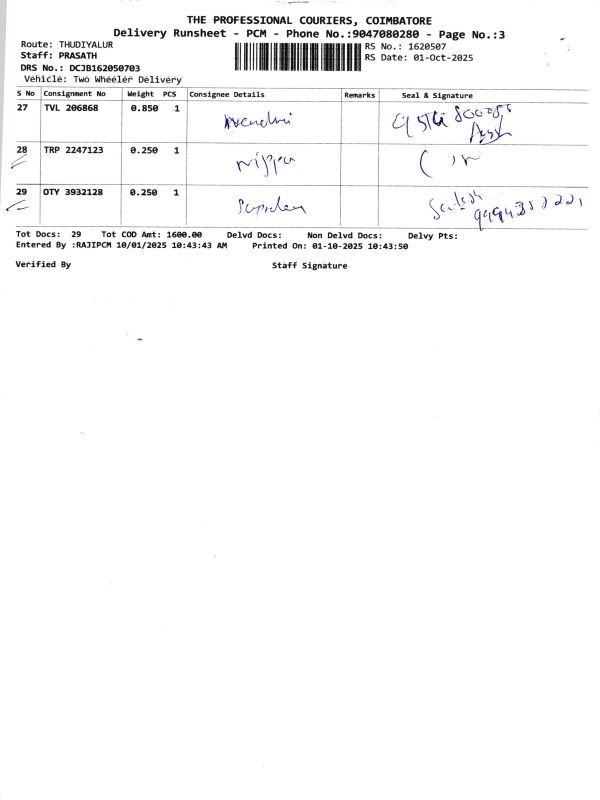 THE PROFESSIONAL COURIERS, COIMBATORE
Delivery Runsheet - PCM - Phone No.:9047080280 - Page No.:3
Route: THUDIYALUR
RS No.: 1620507
Staff: PRASATH
RS Date: 01-Oct-2025
DRS No.: DCJB162050703
Vehicle: Two Wheeler Delivery
S No Consignment No Weight PCS Consignee Details Remarks Seal & Signature
27 TVL 206868 0.850 1
28 TRP 2247123 0.250 1 Nippu
29 OTY 3932128 0.250 1
Tot Docs: 29 Tot COD Amt: 1600.00 Delvd Docs: Non Delvd Docs: Delvy Pts:
Entered By :RAJIPCM 10/01/2025 10:43:43 AM Printed On: 01-10-2025 10:43:50
Verified By Staff Signature